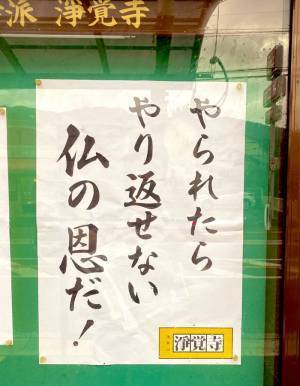 派 淨覚寺
やられたら
やり返せない
仏の恩だ！
淨覚寺